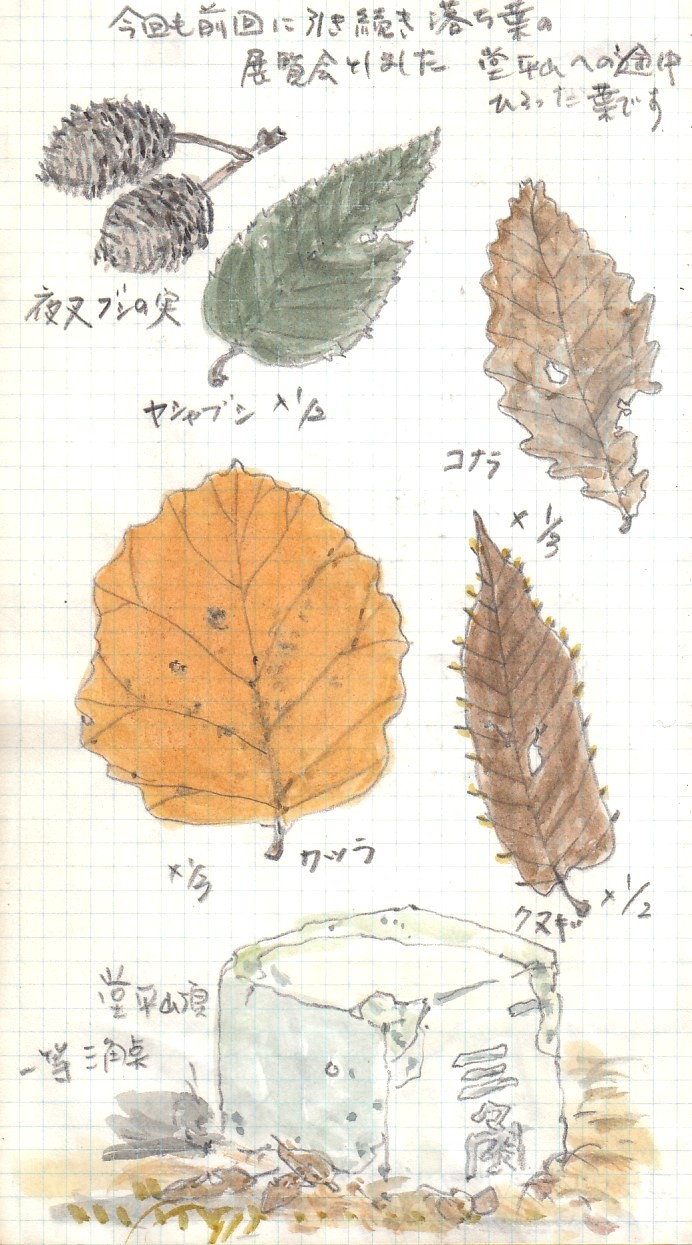 今回も前回に引き続き 落ち葉の
展覧会としました 堂平山への途中
ひろった葉です
夜叉ブシの実
ヤシャブシ ×1/2
コナラ
×1/3
カツラ
×1/3
クヌギ ×1/2
堂平山頂
一等三角点
三角